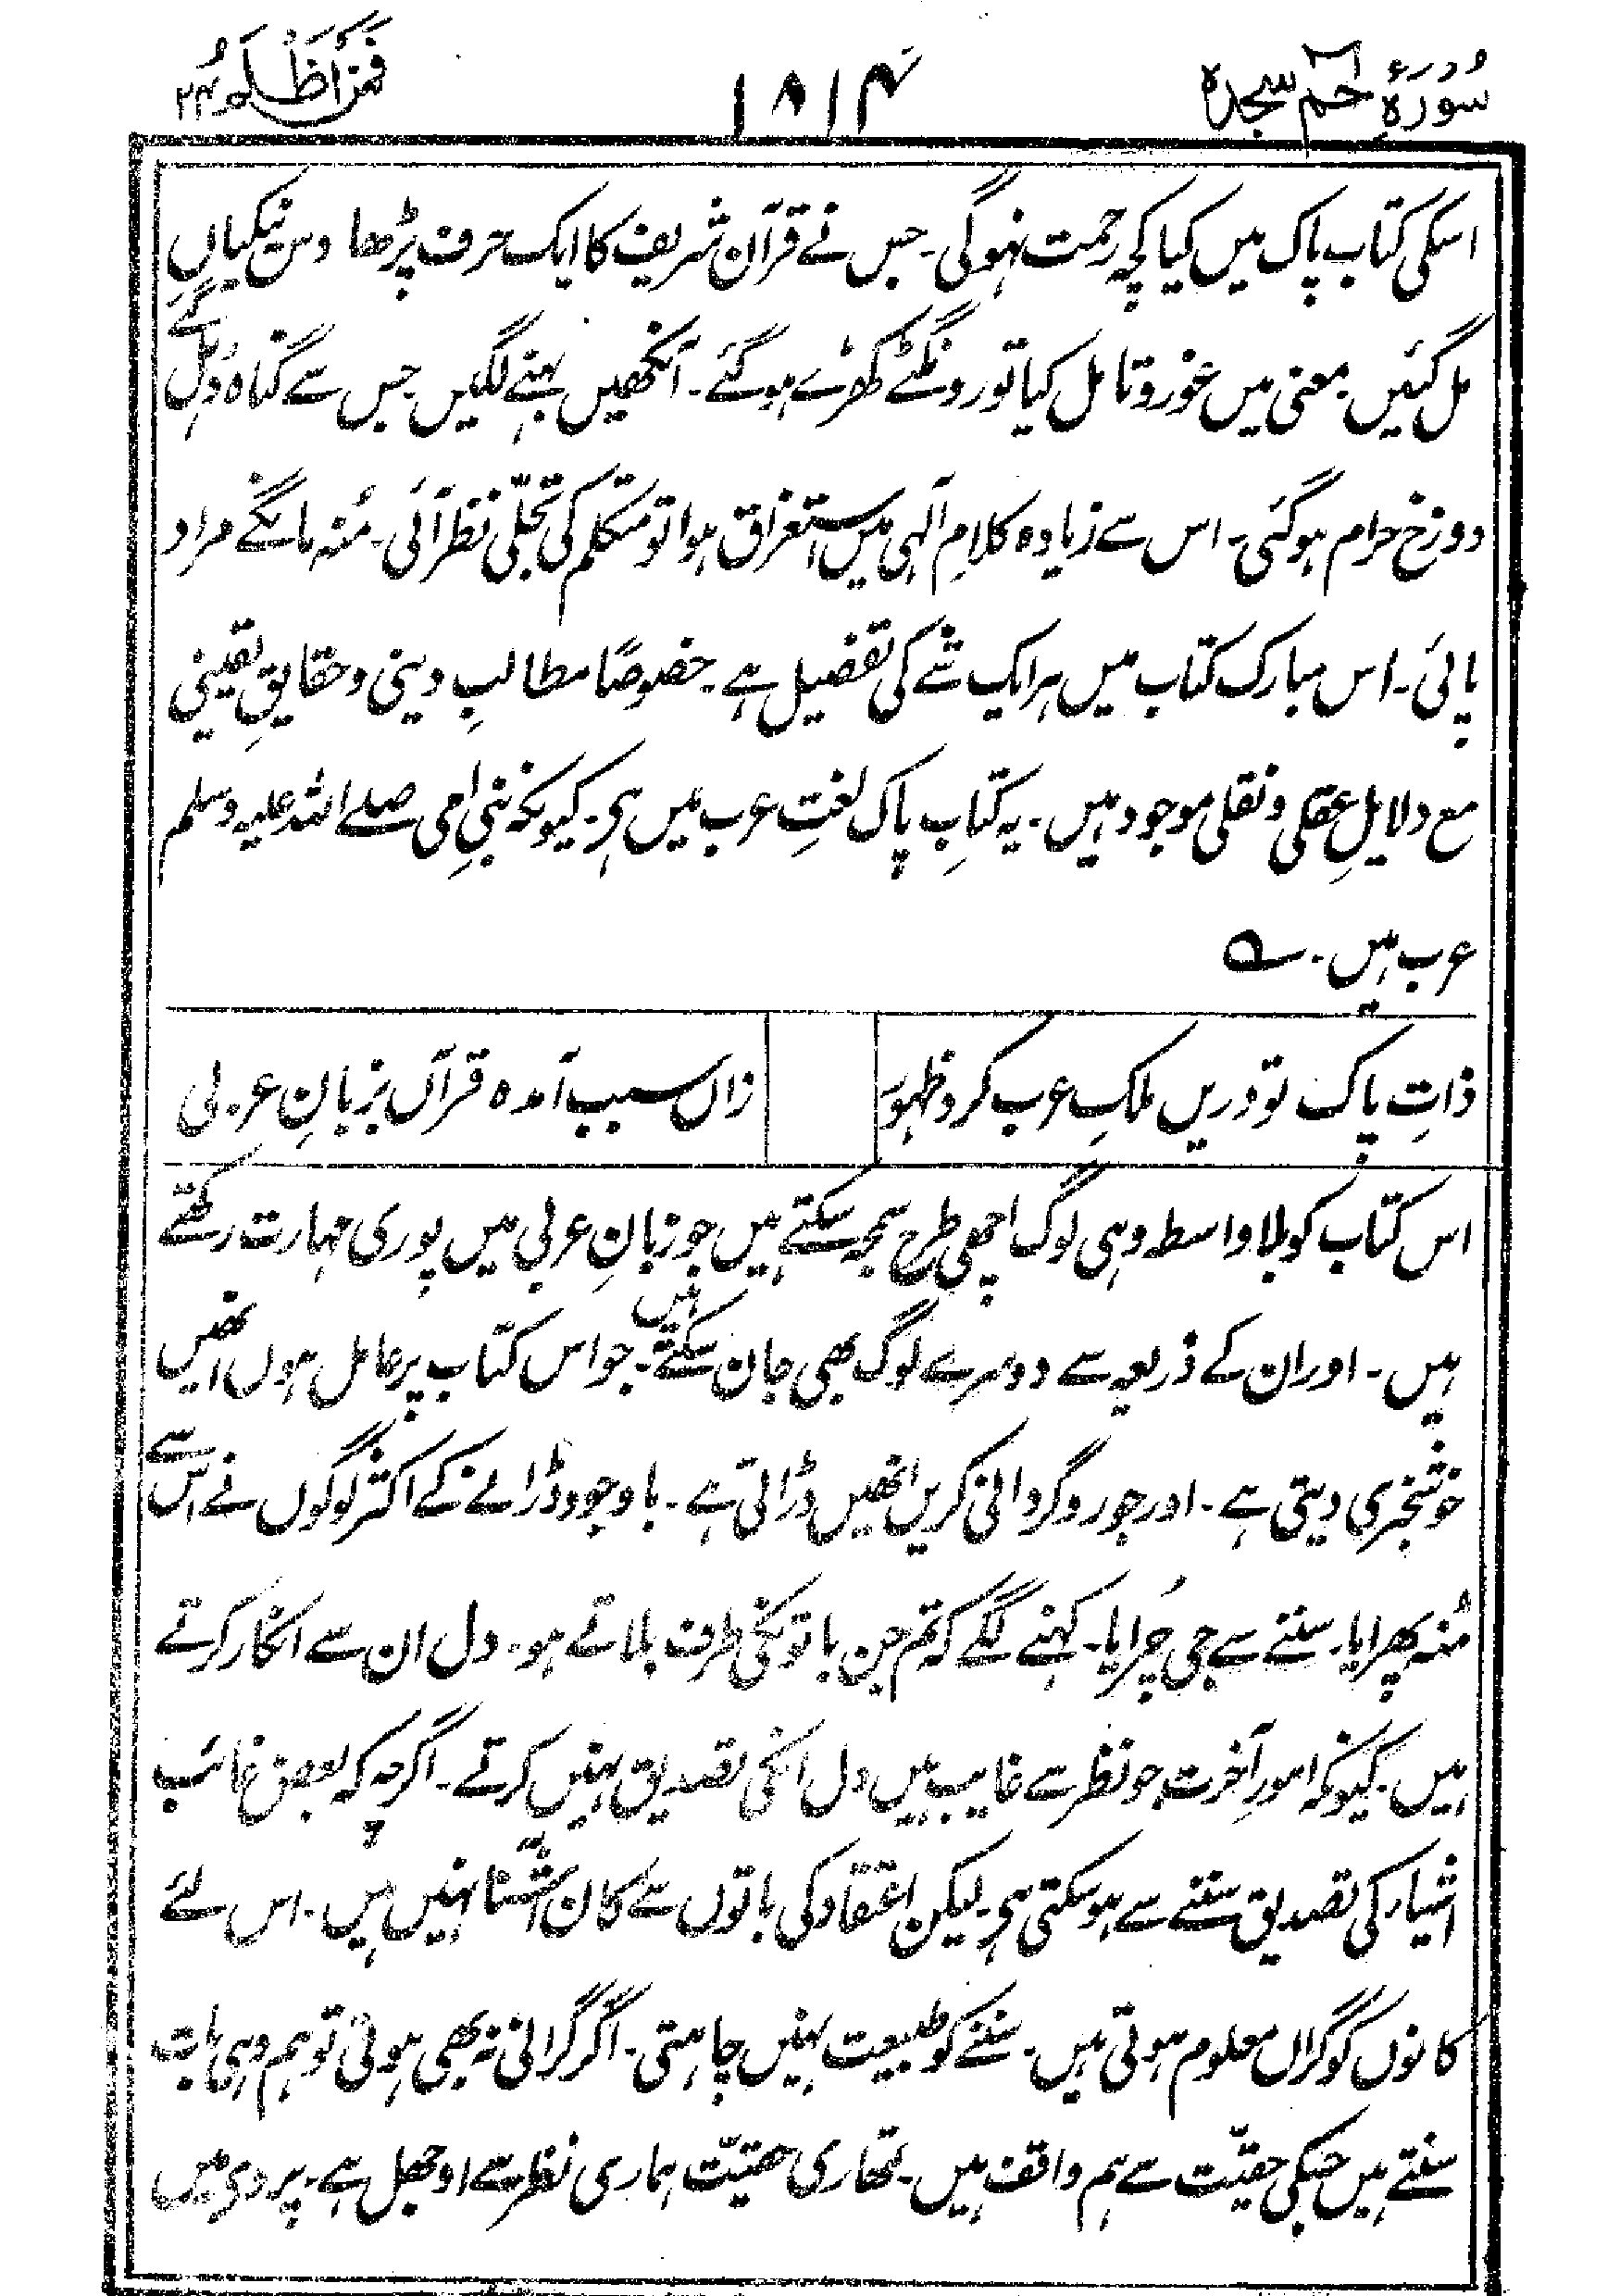 سُورَۂ حٰمٓ سجدہ ۱۸۱۴ فَمَنْ اَظْلَمُ ۲۴
اسکی کتاب پاک میں کیا کچہ رحمت نہوگی۔ جس نے قرآن شریف کا ایک حرف پڑھا دس نیکیاں
مل گئیں۔ معنی میں غور و تامل کیا تو رونگٹے کھڑے ہوگئے۔ آنکھیں بہنے لگیں جس سے گناہ دُہل گئے
دوزخ حرام ہوگئی۔ اس سے زیادہ کلامِ آلہی میں استغراق ہوا تو متکلم کی تجلّی نظر آئی۔ مُنہ مانگے مراد
پائی۔ اس مبارک کتاب میں ہر ایک شے کی تفصیل ہے۔ خصوصًا مطالبِ دینی و حقایقِ یقینی
مع دلایلِ عقلی و نقلی موجود ہیں۔ یہ کتابِ پاک لغتِ عرب میں ہی۔ کیونکہ نبیِ امی صلے اللہ علیہ وسلم
عرب ہیں۔ ؎
ذاتِ پاک تو دریں ملکِ عرب کرد ظہور زاں سبب آمدہ قرآں بزبانِ عربی
اس کتاب کو بلا واسطہ وہی لوگ اچھی طرح سمجہ سکتے ہیں جو زبانِ عربی میں پوری مہارت رکھتے
ہیں۔ اور ان کے ذریعہ سے دوسرے لوگ بھی جان سکتے ہیں۔ جو اس کتاب پر عامل ہوں انھیں
خوشخبری دیتی ہے۔ اور جو روگردانی کریں انھیں ڈراتی ہے۔ باوجود ڈرانے کے اکثر لوگوں نے اس سے
مُنہ پھرایا۔ سننے سے جی چُرایا۔ کہنے لگے کہ تم جن باتونکی طرف بلاتے ہو۔ دل ان سے انکار کرتے
ہیں۔ کیونکہ امورِ آخرت جو نظر سے غایب ہیں دل انکی تصدیق نہیں کرتے۔ اگرچہ کہ بعض غائب
اشیاء کی تصدیق سننے سے ہوسکتی ہی۔ لیکن اعتقاد کی باتوں سے کان آشنا نہیں ہیں۔ اس لئے
کانوں کو گراں معلوم ہوتی ہیں۔ سننے کو طبیعت نہیں چاہتی۔ اگر گرانی نہ بھی ہوتی تو ہم وہی بات
سنتے ہیں جسکی حقیّت سے ہم واقف ہیں۔ تمھاری حقیّت ہماری نظر سے اوجھل ہے۔ پردی میں